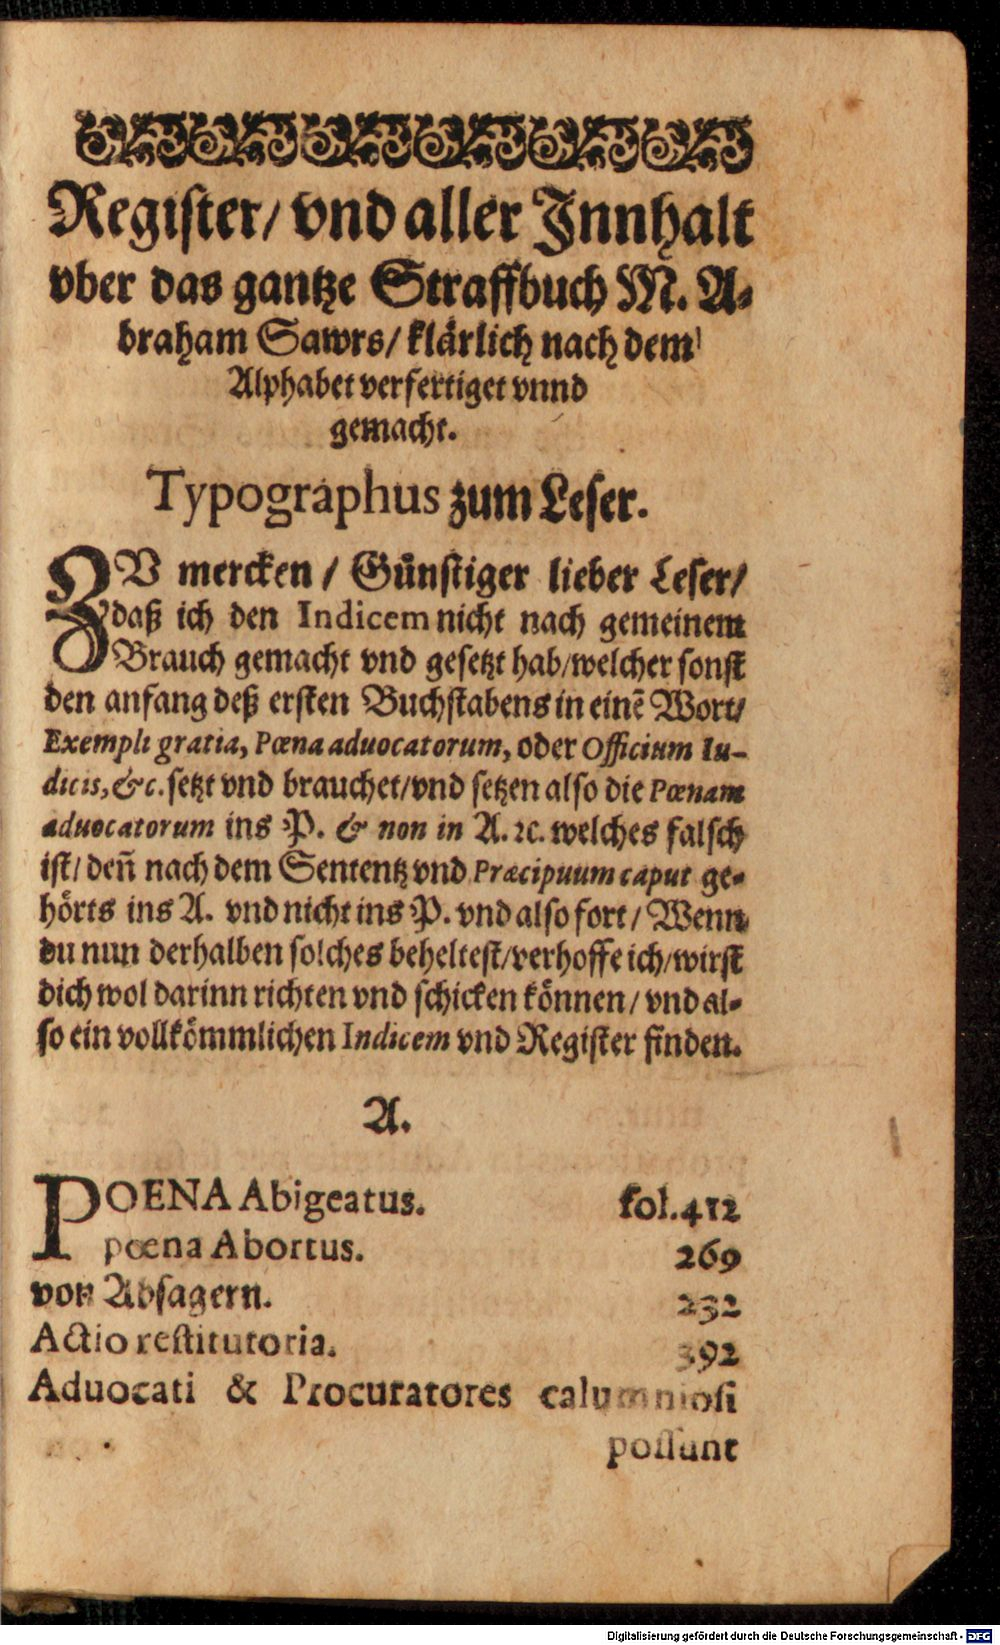 Register/ vnd aller Innhalt
vber das gantze Straffbuch M. A-
braham Sawrs/ klärlich nach dem
Alphabet verfertiget vnnd
gemacht.
Typographus zum Leser.
ZV mercken / Günstiger lieber Leser/
daß ich den Indicem nicht nach gemeinem
Brauch gemacht vnd gesetzt hab/welcher sonst
den anfang deß ersten Buchstabens in einē Wort/
Exempli gratia, Pœna aduocatorum, oder Officium Iu-
dicis, &c. setzt vnd brauchet/vnd setzen also die Pœnam
aduocatorum ins P. & non in A. ꝛc. welches falsch
ist/ deñ nach dem Sententz vnd Præcipuum caput ge-
hörts ins A. vnd nicht ins P. vnd also fort/ Wenn
du nun derhalben solches beheltest/verhoffe ich/wirst
dich wol darinn richten vnd schicken können/ vnd al-
so ein vollkömmlichen Indicem vnd Register finden.
A.
POENA Abigeatus. fol.412
pœna Abortus. 269
von Absagern. 232
Actio restitutoria. 392
Aduocati & Procuratores calumniosi
possunt
Digitalisierung gefördert durch die Deutsche Forschungsgemeinschaft - DFG